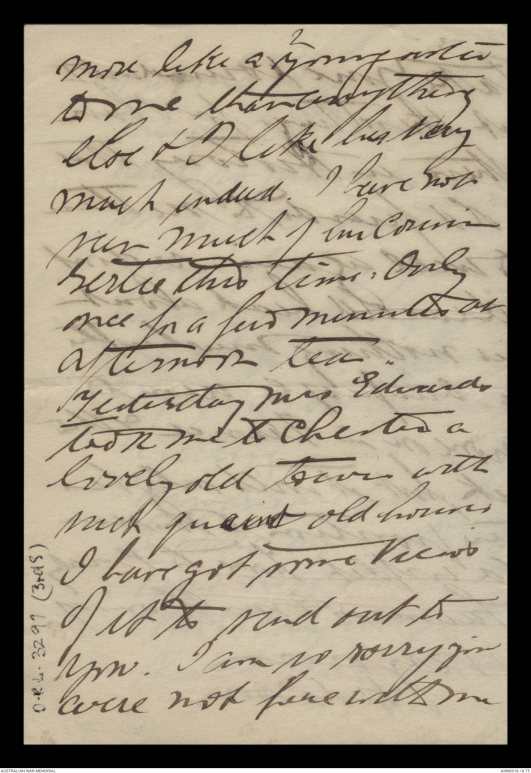 more like a young sister
to me than anything
else & I like her very
much indeed. I have not
seen much of my Cousin
Bertie this time. Only
once for a few minutes at
afternoon tea.
Yesterday Mrs Edwards
took me to Chester a
lovely old town with
such quaint old houses
I have got some Views
of it to send out to
you. I am so sorry you
were not here with me
O.R.L. 3297 (3rd S)
AUSTRALIAN WAR MEMORIAL